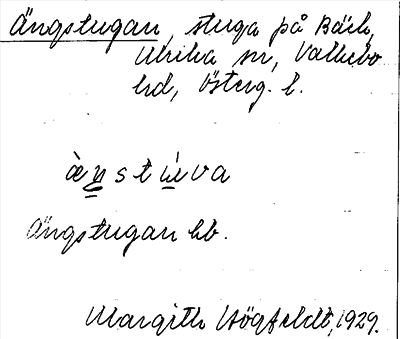 Ängstugan, stuga på Bäck,
Ulrika sn, Valkebo
hd, Österg. l.
ängstugan hb.
Margith Högfeldt, 1929.